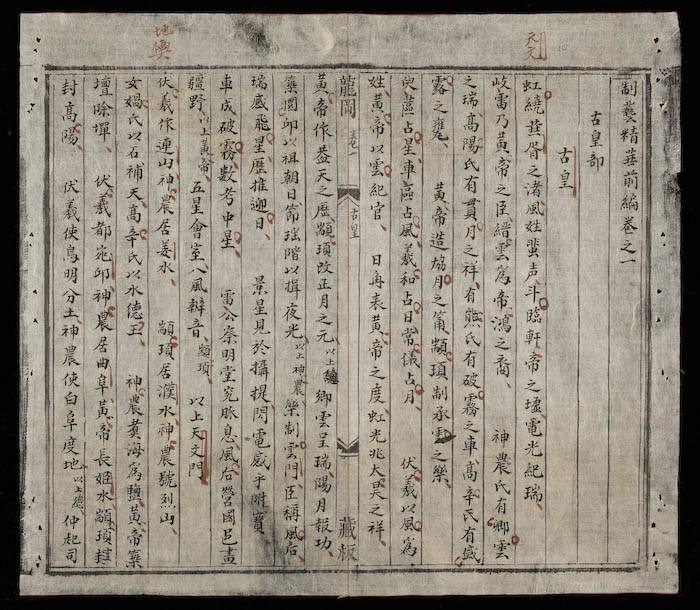 天文
地輿
制藝精華前編卷之一
古皇部
古皇
虹繞華胥之渚風姓蜚声、斗臨軒帝之墟電光紀瑞、
岐雷乃黄帝之臣縉雲爲帝鴻之裔、 神農氏有卿雲
之瑞、高陽氏有貫月之祥、有熊氏有破霧之車、高辛氏有盛
露之甕、 黄帝造協月之筩、顓頊制承雲之樂、
臾蓲占星、車區占風、羲和占日、常儀占月、 伏羲以風為
姓、黄帝以雲紀官、 日冉表黄帝之度、虹光兆太昊之祥、
龍岡 卷一 古皇 藏板
黄帝作蓋天之歷、顓頊改正月之元、以上總 卿雲呈瑞、陽月報功、
藥閣卯以祖朝日、節瑤階以揖夜光、以上神農 樂制雲門、臣稱風后、
瑞感飛星、歷推迎日、 景星見於攝提、閃電感乎附寶、
車成破霧、數考中星、 雷公察明堂究脈息、風后營國邑畫
疆野、以上黄帝 五星會室、八風辨音、顓頊 以上天文門
伏羲作連山、神農居姜水、 顓頊居濮水、神農號烈山、
女媧氏以石補天、高辛氏以水德王、 神農煑海爲鹽、黄帝築
壇除墠、 伏羲都宛邱、神農居曲阜、黄帝長姬水、顓頊
封高陽、 伏羲使鳥明分土、神農使白阜度地、以上總 仲起司